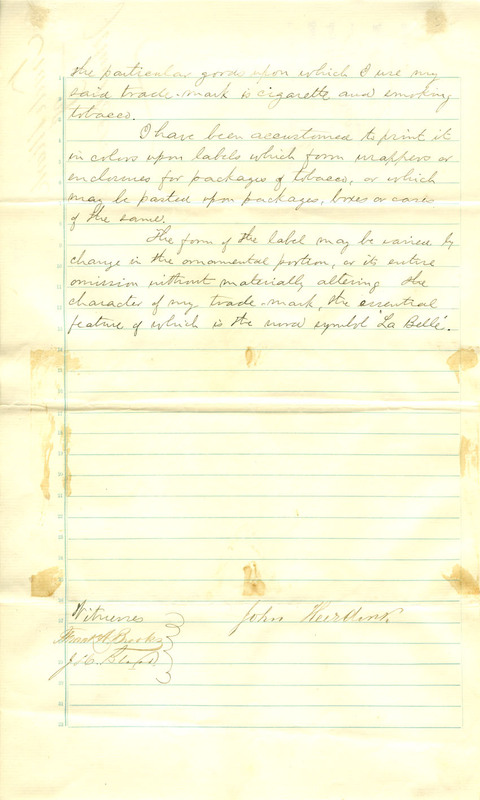 the particular goods upon which I use my
said trade-mark is cigarette and smoking
tobacco.
I have been accustomed to print it
in colors upon labels which form wrappers or
enclosures for packages of tobacco, or which
may be pasted upon packages, boxes or cases
of the same.
The form of the label may be varied by
change in the ornamental portion, or its entire
omission without materially altering the
character of my trade-mark, the essential
feature of which is the word symbol 'La Belle'.
Witnesses
John
Brooks